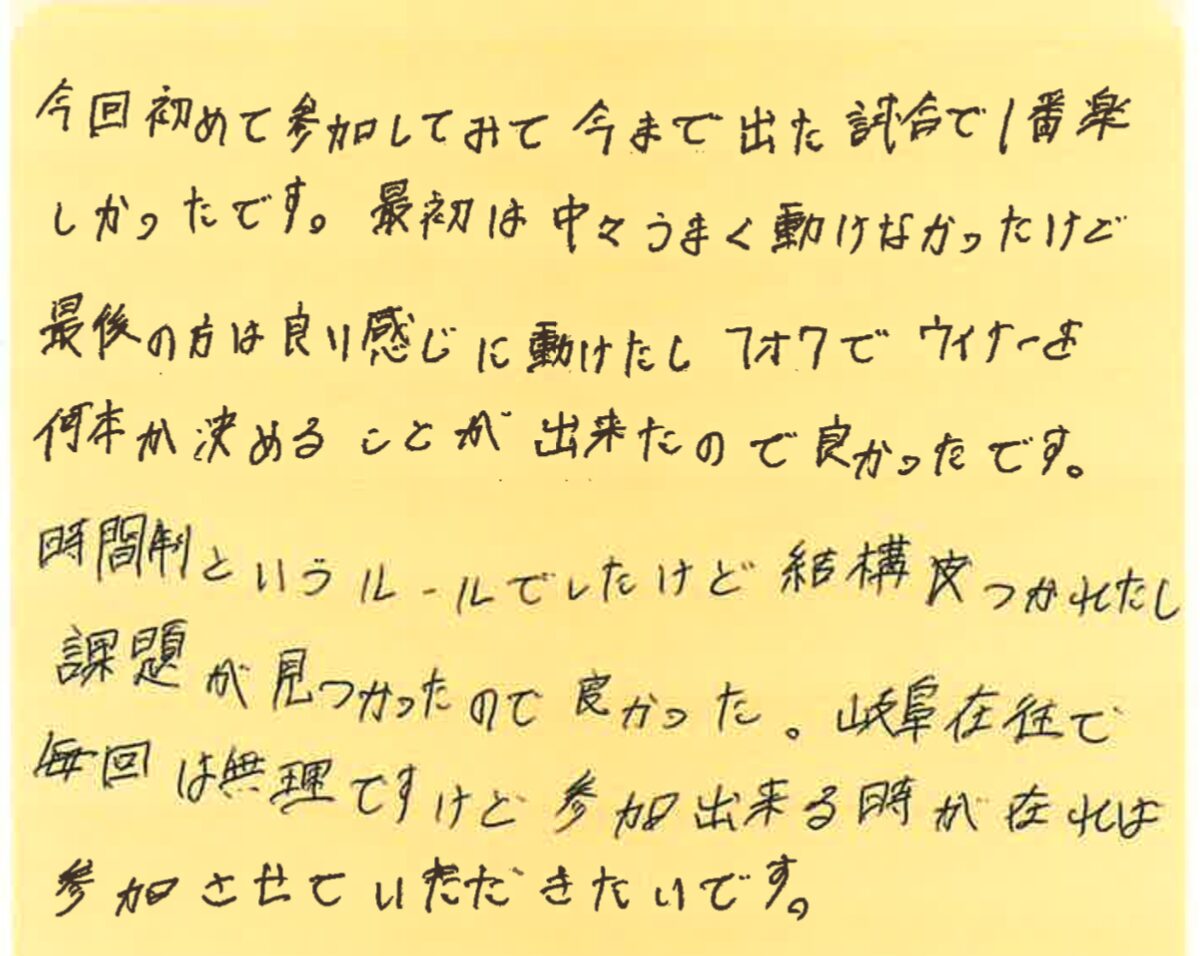 今回初めて参加してみて今まで出た試合で1番楽
しかったです。最初は中々うまく動けなかったけど
最後の方は良い感じに動けたしフォワでウイナーを
何本か決めることが出来たので良かったです。
時間制というルールでしたけど結構つかれたし
課題が見つかったので良かった。岐阜在住で
毎回は無理ですけど参加出来る時が在れば
参加させていただきたいです。